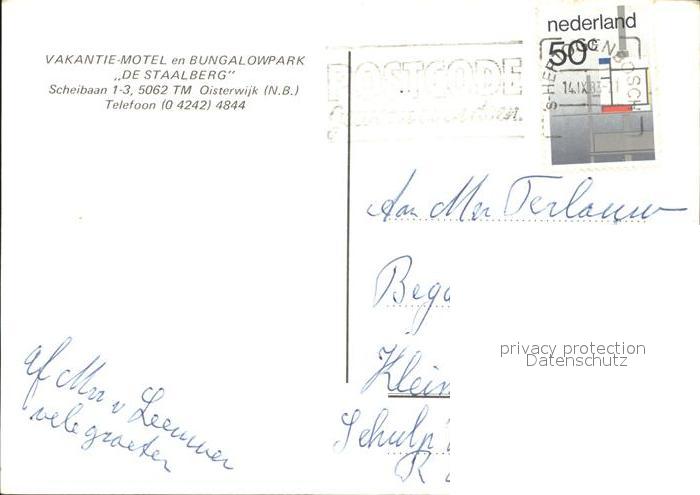 VAKANTIE-MOTEL en BUNGALOWPARK
„DE STAALBERG"
Scheibaan 1-3, 5062 TM Oisterwijk (N.B.)
Telefoon (0 4242) 4844
POSTCODE
nederland
50c
's-HERTOGENBOSCH
14.IX.83
Aan Mw Terlouw
Bega
Klein
Schulp
R
privacy protection
Datenschutz
af Mw v Leemmer
vele groeten